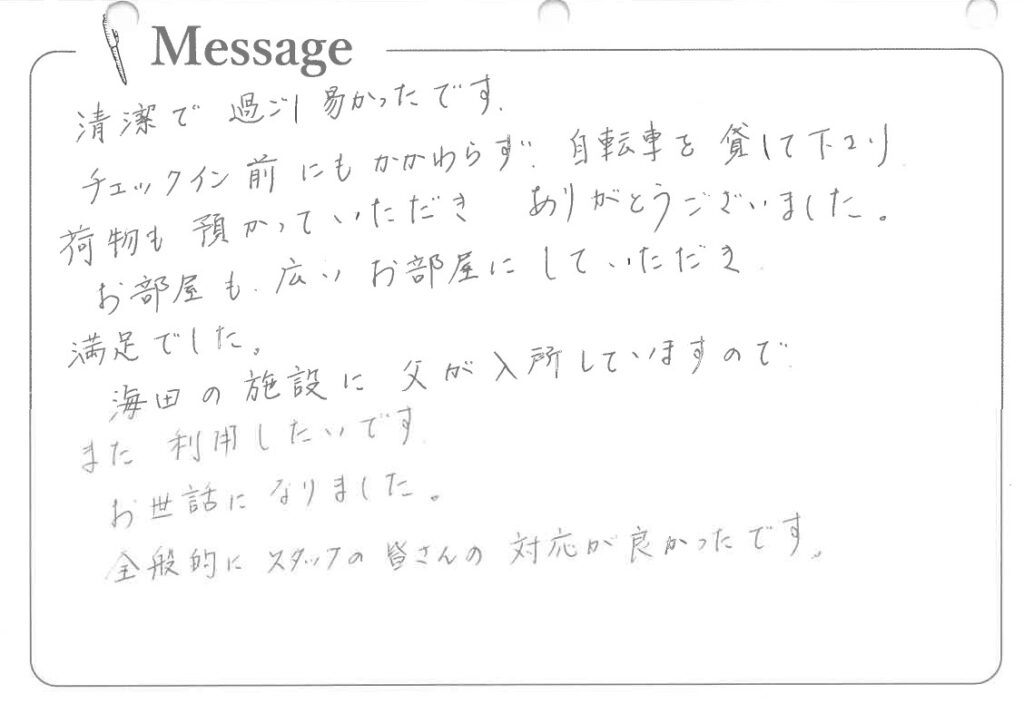 Message
清潔で過ごし易かったです.
チェックイン前にもかかわらず、自転車を貸して下さり
荷物も預かっていただき ありがとうございました。
お部屋も、広いお部屋にしていただき
満足でした。
海田の施設に父が入所していますので
また利用したいです.
お世話になりました。
全般的にスタッフの皆さんの対応が良かったです。